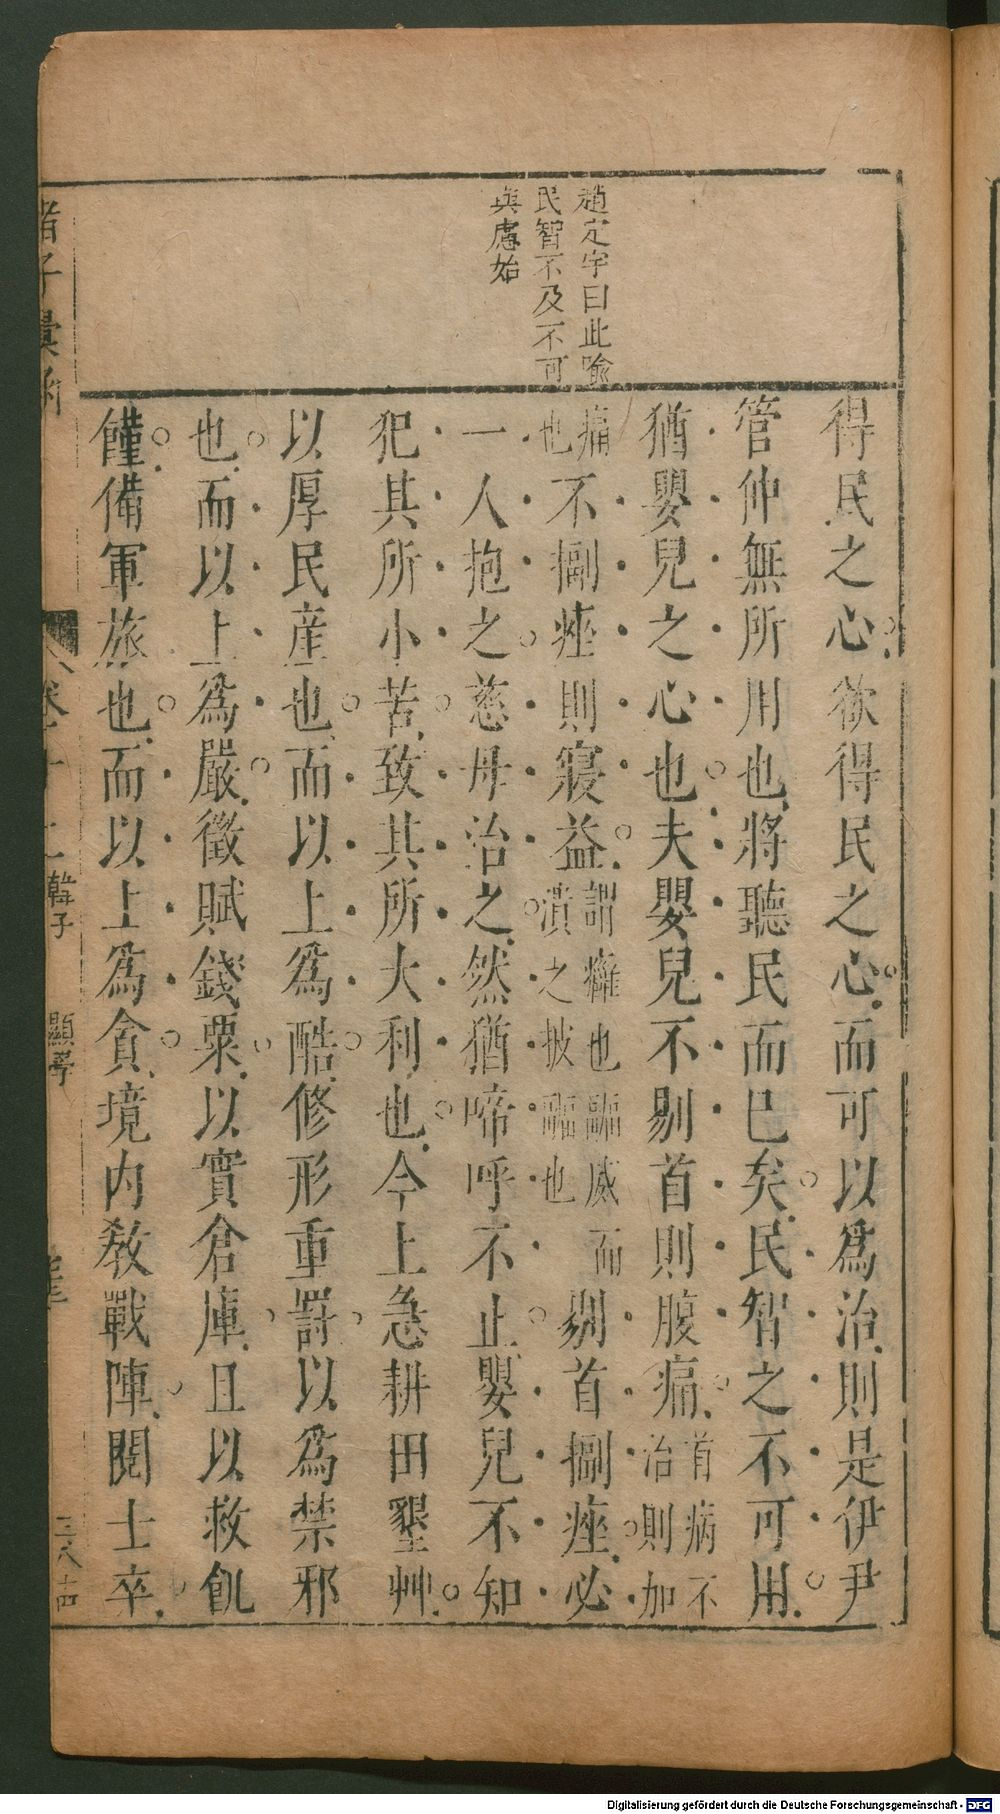 趙定宇曰此喻
民智不及不可
與慮始
得民之心欲得民之心而可以為治則是伊尹
管仲無所用也將聽民而已矣民智之不可用
猶嬰兒之心也夫嬰兒不剔首則腹痛首病不治則加
痛也不副痤則寢益謂癰也 而潰之披 也剔首副痤必
一人抱之慈母治之然猶啼呼不止嬰兒不知
犯其所小苦致其所大利也今上急耕田墾艸
以厚民産也而以上為酷修形重罰以為禁邪
也而以上為嚴徵賦錢粟以實倉庫且以救飢
饉備軍旅也而以上為貪境内教戰陣閱士卒
諸子彙函
卷十二
韓子
顯學
三八四
Digitalisierung gefördert durch die Deutsche Forschungsgemeinschaft - DFG